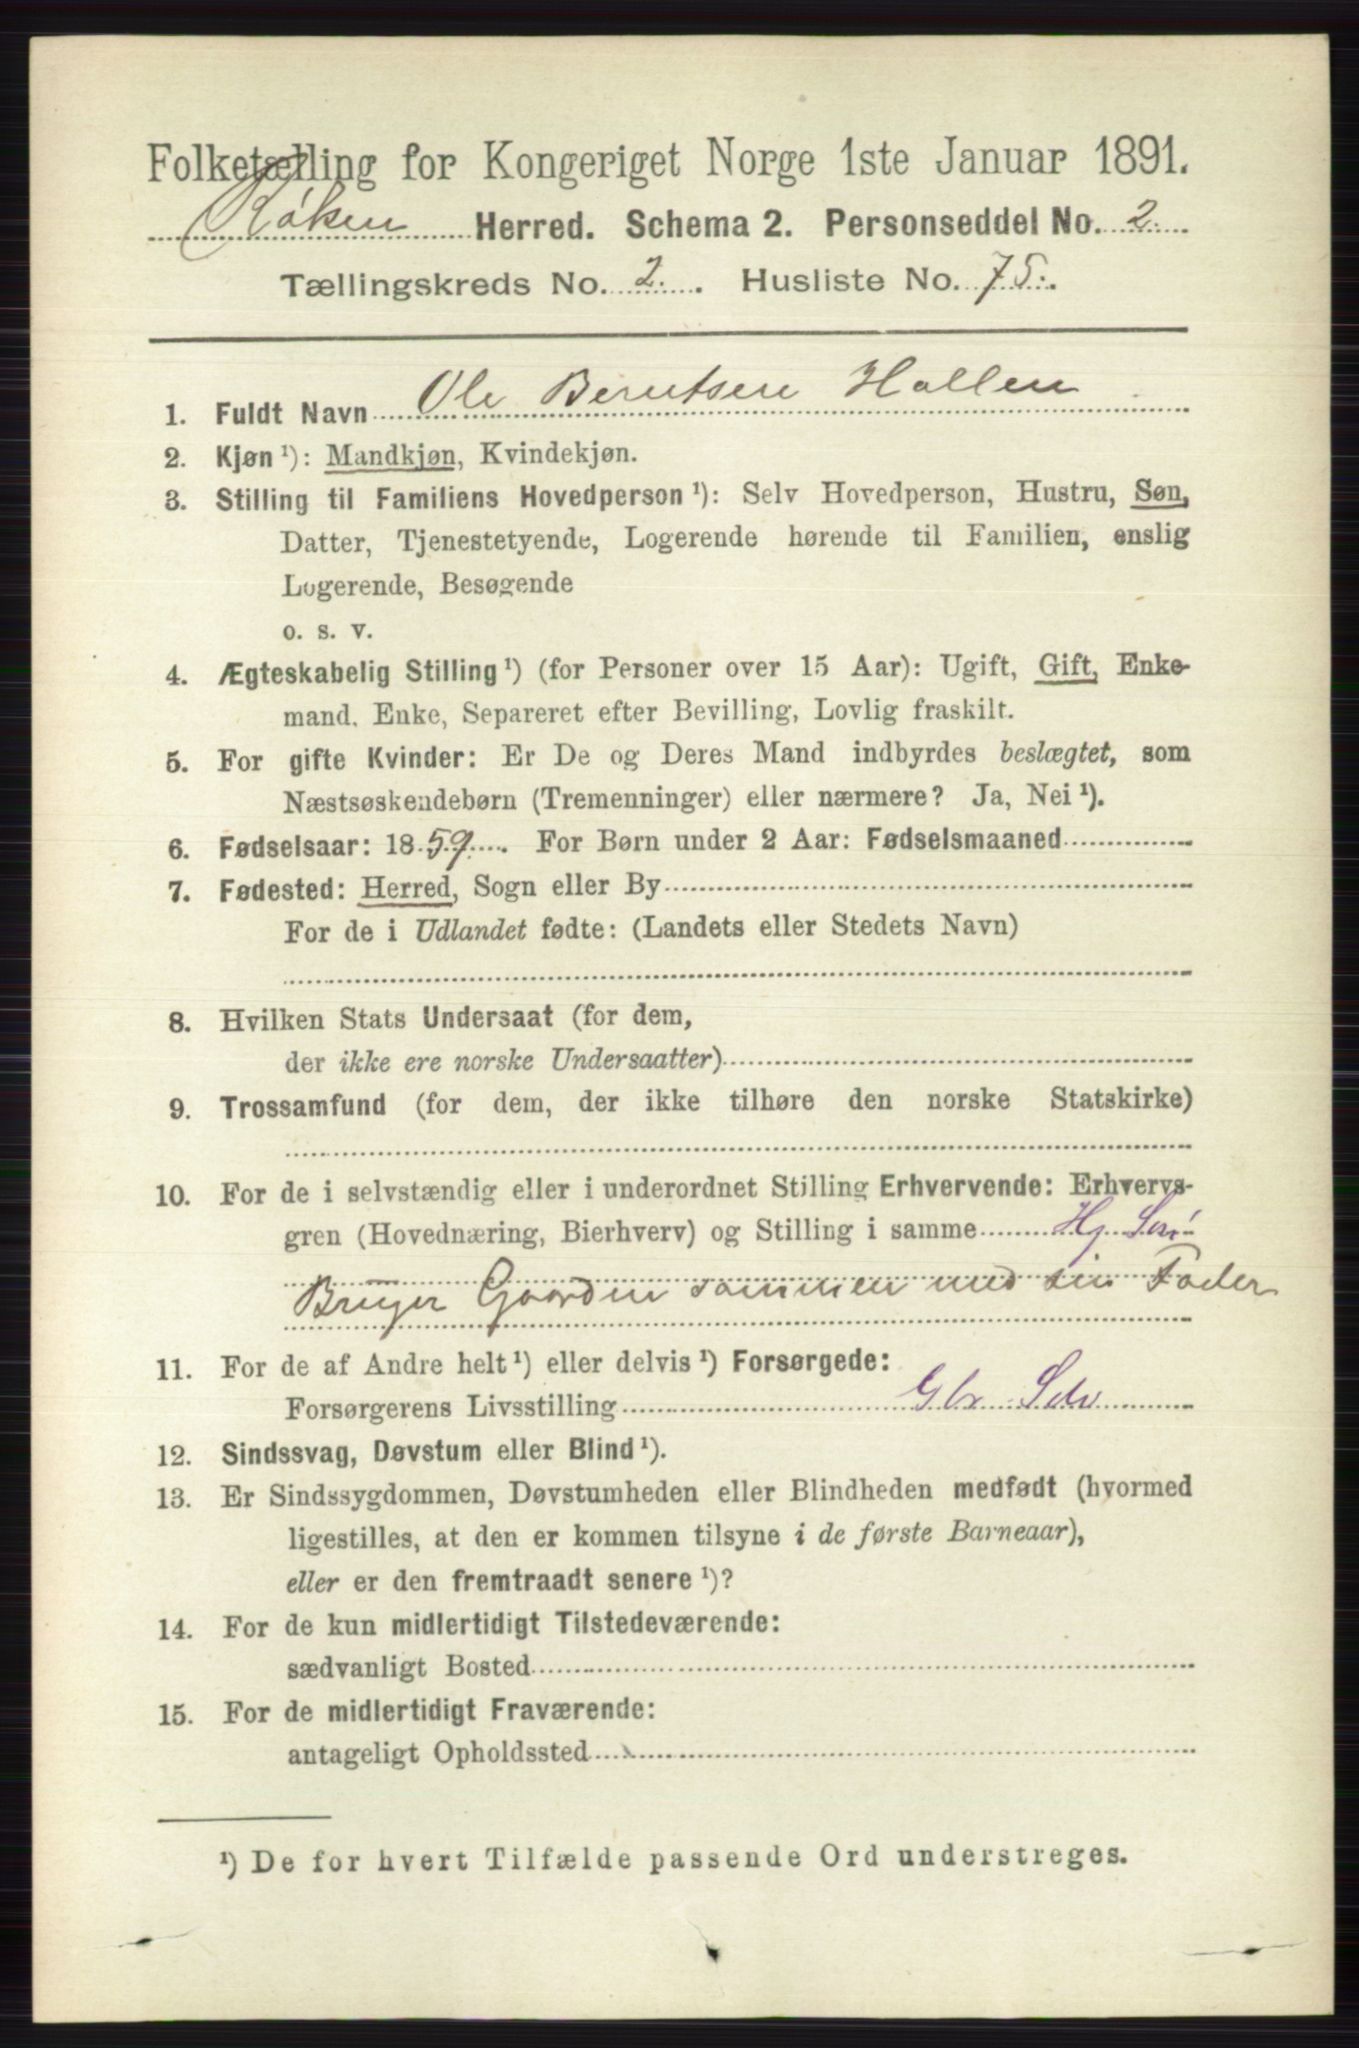 Folketælling for Kongeriget Norge 1ste Januar 1891.
Røken Herred. Schema 2. Personseddel No. 2.
Tællingskreds No. 2. Husliste No. 75.
1. Fuldt Navn Ole Berntsen Hallen
2. Kjøn ¹): Mandkjøn, Kvindekjøn.
3. Stilling til Familiens Hovedperson ¹): Selv Hovedperson, Hustru, Søn,
Datter, Tjenestetyende, Logerende hørende til Familien, enslig
Logerende, Besøgende
o. s. v.
4. Ægteskabelig Stilling ¹) (for Personer over 15 Aar): Ugift, Gift, Enke-
mand, Enke, Separeret efter Bevilling, Lovlig fraskilt.
5. For gifte Kvinder: Er De og Deres Mand indbyrdes beslægtet, som
Næstsøskendebørn (Tremenninger) eller nærmere? Ja, Nei ¹).
6. Fødselsaar: 1859. For Børn under 2 Aar: Fødselsmaaned
7. Fødested: Herred, Sogn eller By
For de i Udlandet fødte: (Landets eller Stedets Navn)
8. Hvilken Stats Undersaat (for dem,
der ikke ere norske Undersaatter)
9. Trossamfund (for dem, der ikke tilhøre den norske Statskirke)
10. For de i selvstændig eller i underordnet Stilling Erhvervende: Erhvervs-
gren (Hovednæring, Bierhverv) og Stilling i samme Hj
Bruger Gaarden sammen med sin Fader
11. For de af Andre helt ¹) eller delvis ¹) Forsørgede:
Forsørgerens Livsstilling Gbr Selv
12. Sindssvag, Døvstum eller Blind ¹).
13. Er Sindssygdommen, Døvstumheden eller Blindheden medfødt (hvormed
ligestilles, at den er kommen tilsyne i de første Barneaar),
eller er den fremtraadt senere ¹)?
14. For de kun midlertidigt Tilstedeværende:
sædvanligt Bosted
15. For de midlertidigt Fraværende:
antageligt Opholdssted
¹) De for hvert Tilfælde passende Ord understreges.